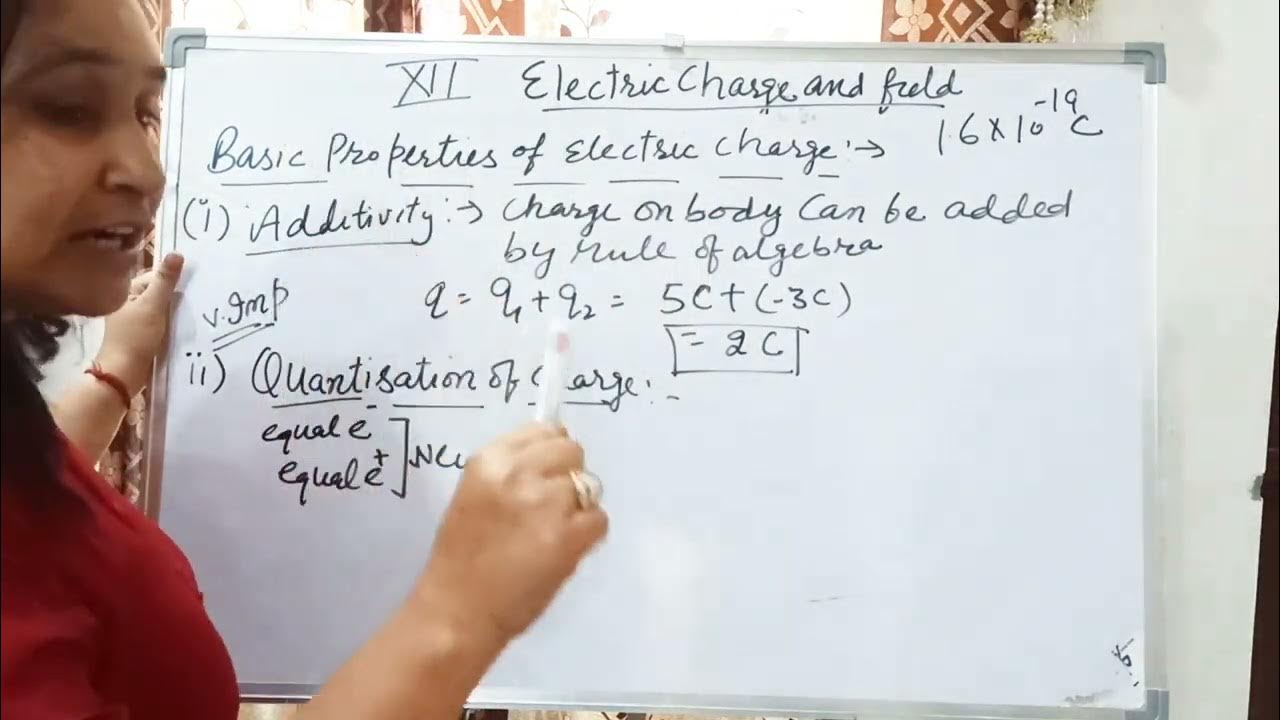 XII Electric Charge and field
1.6 X 10⁻¹⁹ C
Basic Properties of Electric Charge :→
(i) Additivity :→ Charge on body Can be added
by rule of algebra
q = q₁ + q₂ = 5C + (-3C)
= 2C
v. Imp
ii) Quantisation of Charge :-
equal e⁻
equal e⁺